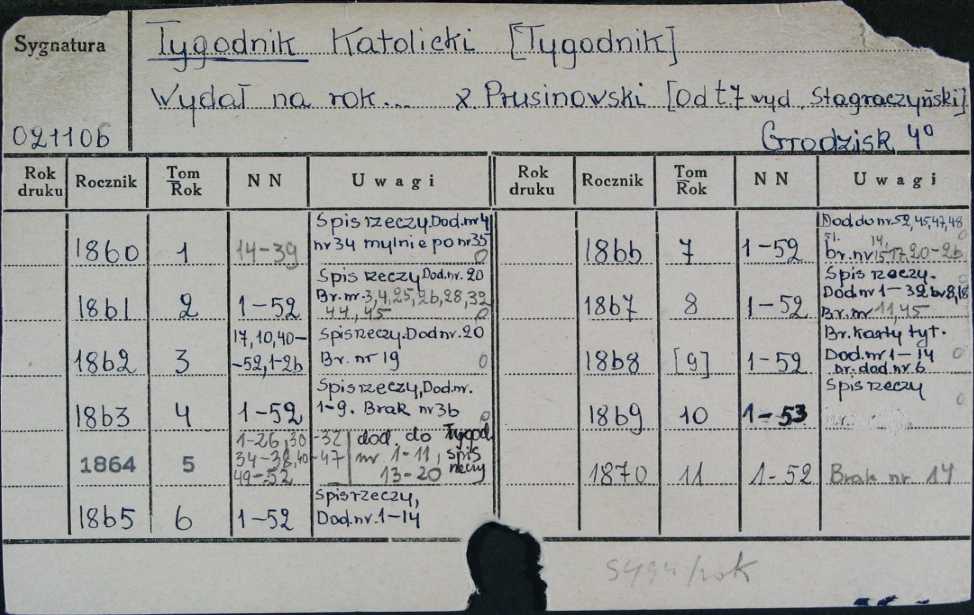 Sygnatura
Tygodnik Katolicki [Tygodnik]
Wydał na rok... x. Prusinowski [Od t.7 wyd. Stagraczyński]
021106
Grodzisk, 4°
Rok druku Rocznik Tom Rok NN Uwagi Rok druku Rocznik Tom Rok NN Uwagi
1860 1 14-39 Spis rzeczy. Dod. nr 4
nr 34 mylnie po nr 35
0
1861 2 1-52 Spis rzeczy Dod. nr. 20
Br. nr. 3,4,25,26,28,32,
44, 45 0
1862 3 17,10,40-
-52,1-26 Spis rzeczy. Dod nr. 20
Br. nr 19 0
1863 4 1-52 Spis rzeczy, Dod. nr.
1-9. Brak nr 36 0
1864 5 1-26,30-32
34-38,40-47
49-52 dod. do Tygod.
nr. 1-11, spis
13-20 rzeczy
1865 6 1-52 Spis rzeczy,
Dod. nr. 1-14
1866 7 1-52 Dod do nr. 52, 45, 47, 48
51. 14,
br. nr 15 17, 20-26 0
1867 8 1-52 Spis rzeczy.
Dod nr 1-32 br 8,18
Br. nr 11, 45
1868 [9] 1-52 Br. karty tyt.
Dod. nr 1-14 0
br. dod. nr 6
1869 10 1-53 Spis rzeczy
1870 11 1-52 Brak nr. 14
sygn/rok